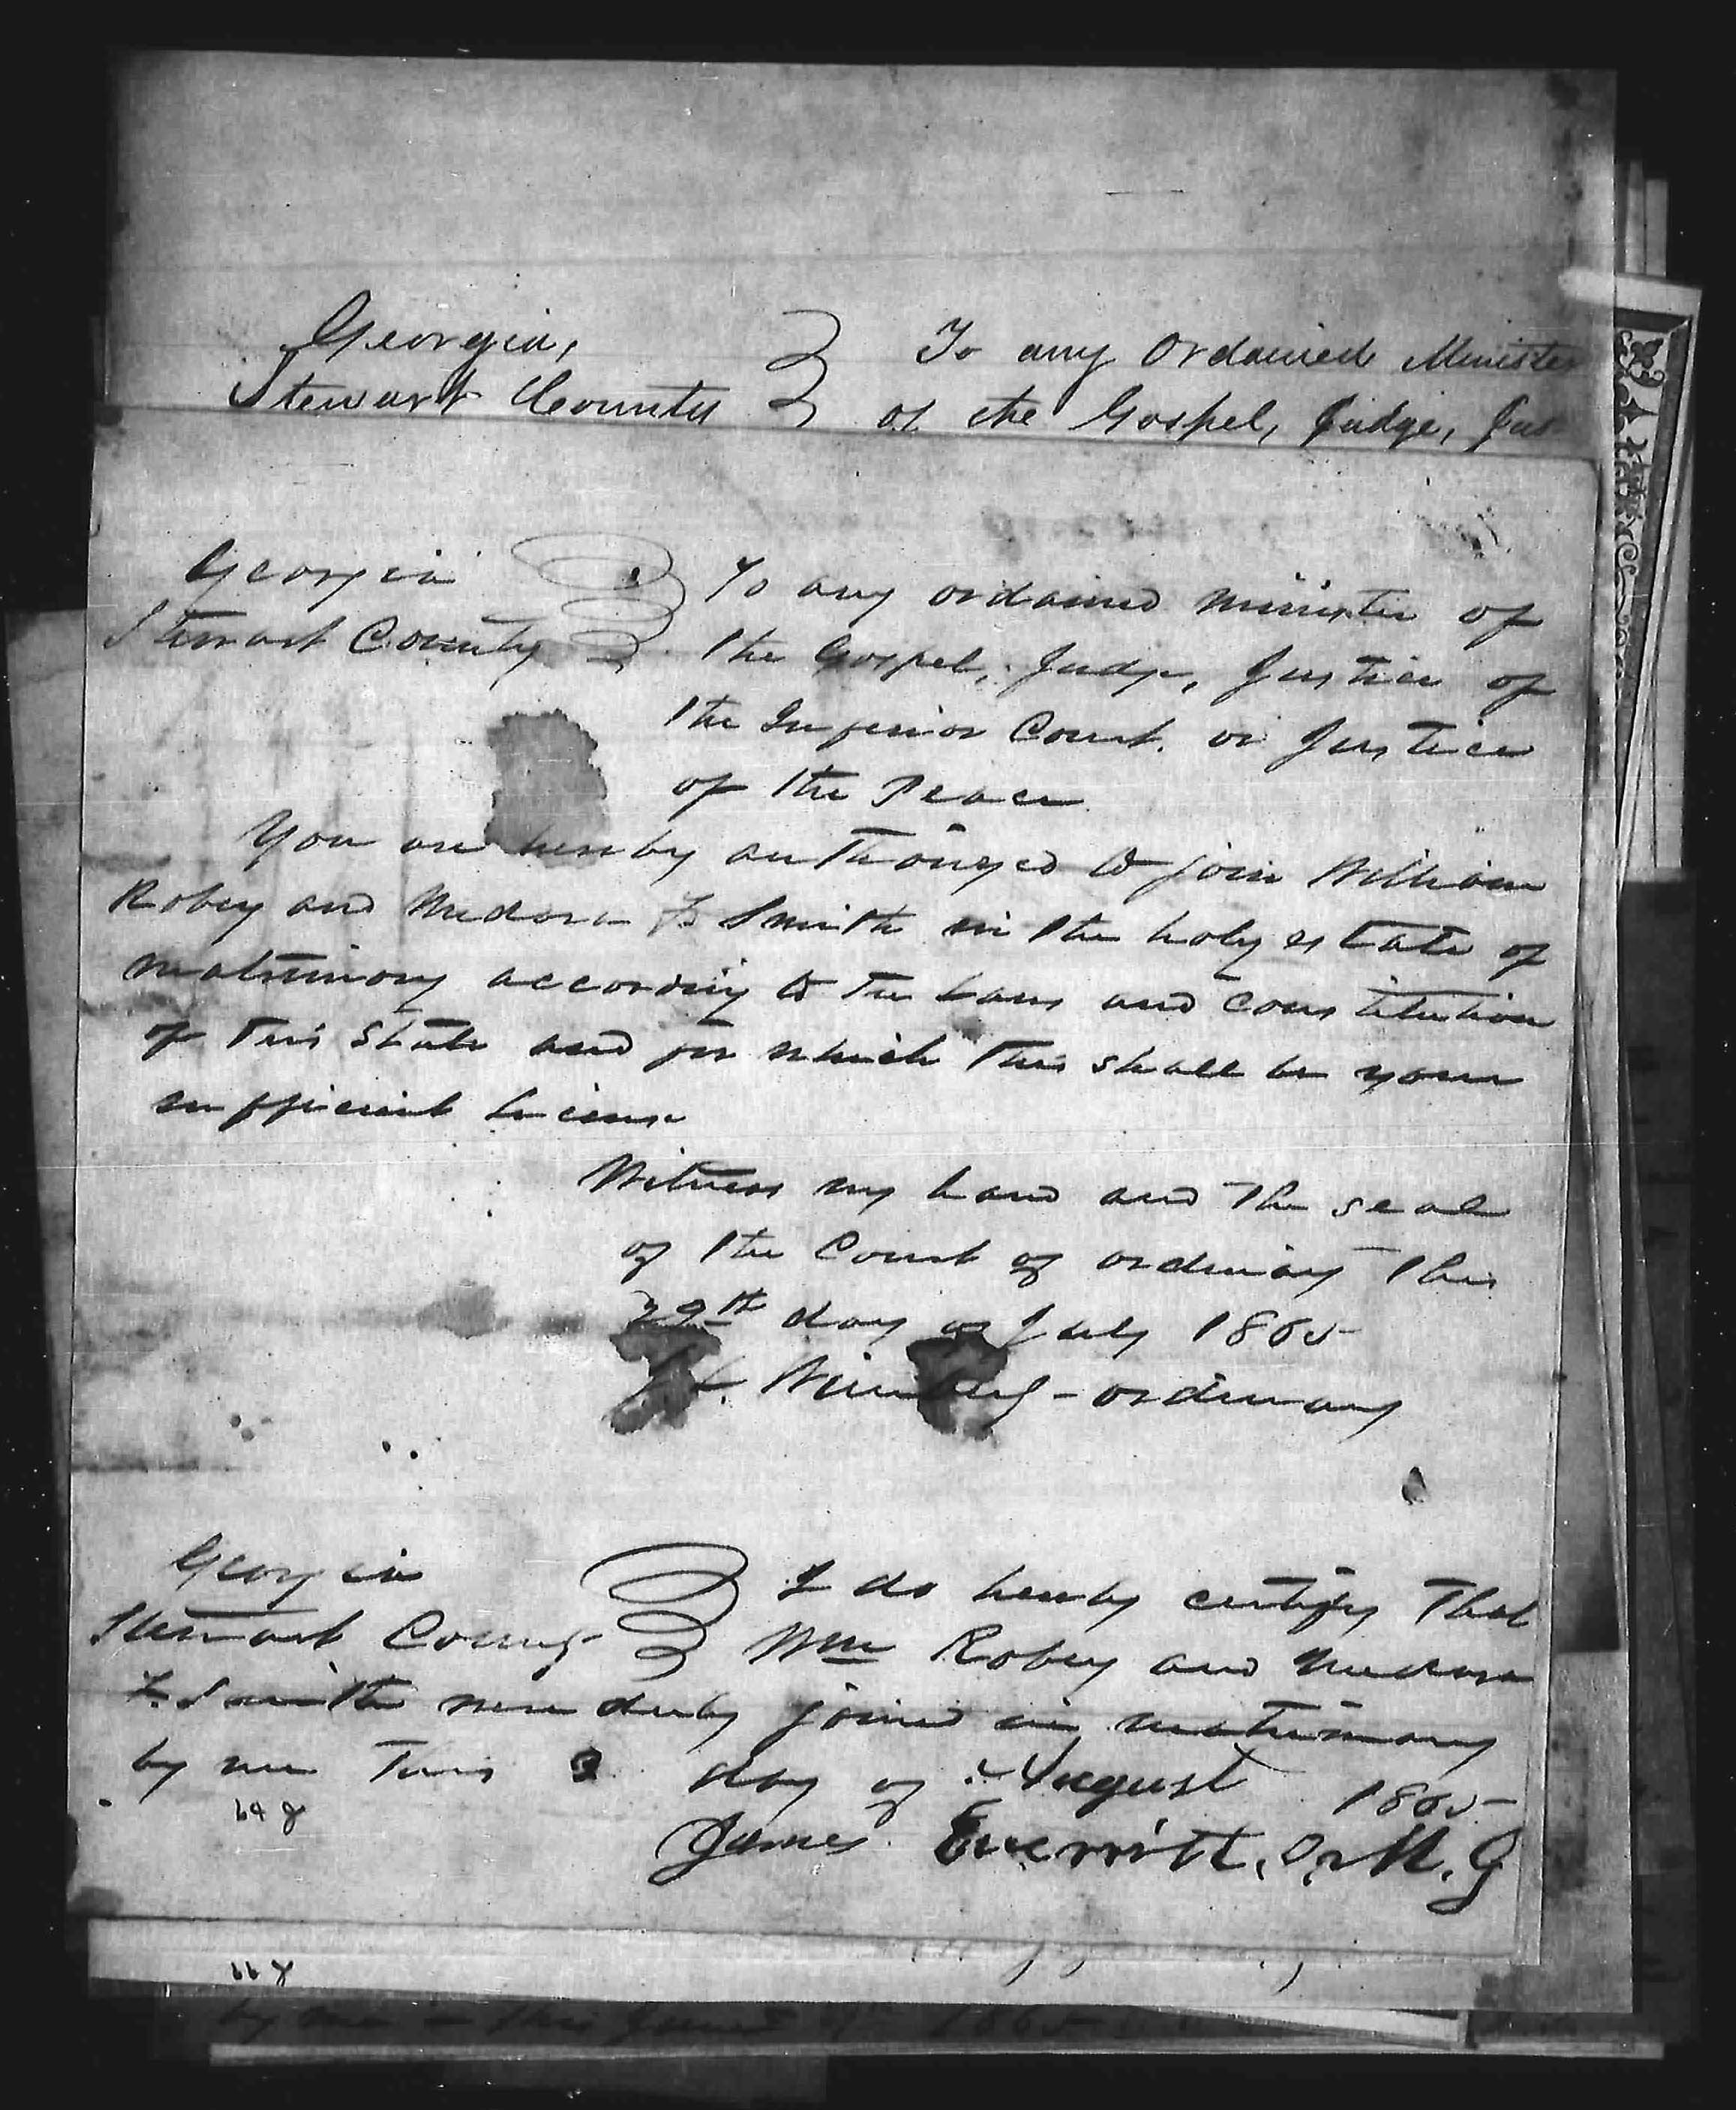 Georgia,
Stewart County
To any Ordained Minister
of the Gospel, Judge, Jus
Georgia
Stewart County
To any ordained minister of
the Gospel, Judge, Justice of
the Inferior Court, or Justice
of the Peace
You are hereby authorized to join William
Robey and Medora F Smith in the holy estate of
matrimony according to the Laws and constitution
of this State and for which this shall be your
sufficient License
Witness my hand and the seal
of the Court of ordinary this
29th day of July 1865
- ordinary
Georgia
Stewart County
I do hereby certify that
Wm Robey and Medora
F. Smith were duly joined in matrimony
by me this 3 day of August 1865
James Everritt, O. M. G